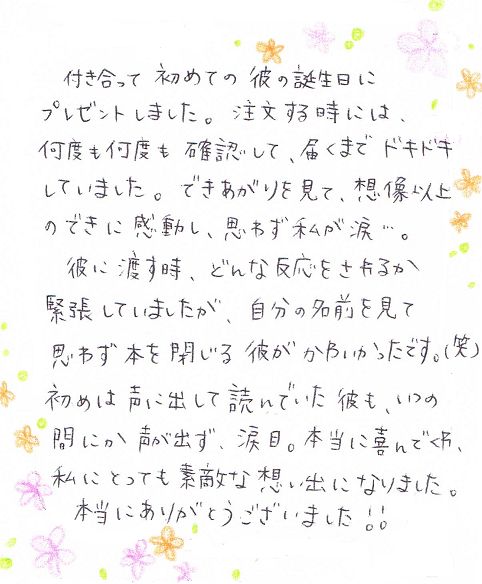 付き合って初めての彼の誕生日に
プレゼントしました。注文する時には、
何度も何度も確認して、届くまでドキドキ
していました。できあがりを見て、想像以上
のできに感動し、思わず私が涙…。
彼に渡す時、どんな反応をされるか
緊張していましたが、自分の名前を見て
思わず本を閉じる彼がかわいかったです。(笑)
初めは声に出して読んでいた彼も、いつの
間にか声が出ず、涙目。本当に喜んでくれ、
私にとっても素敵な想い出になりました。
本当にありがとうございました!!